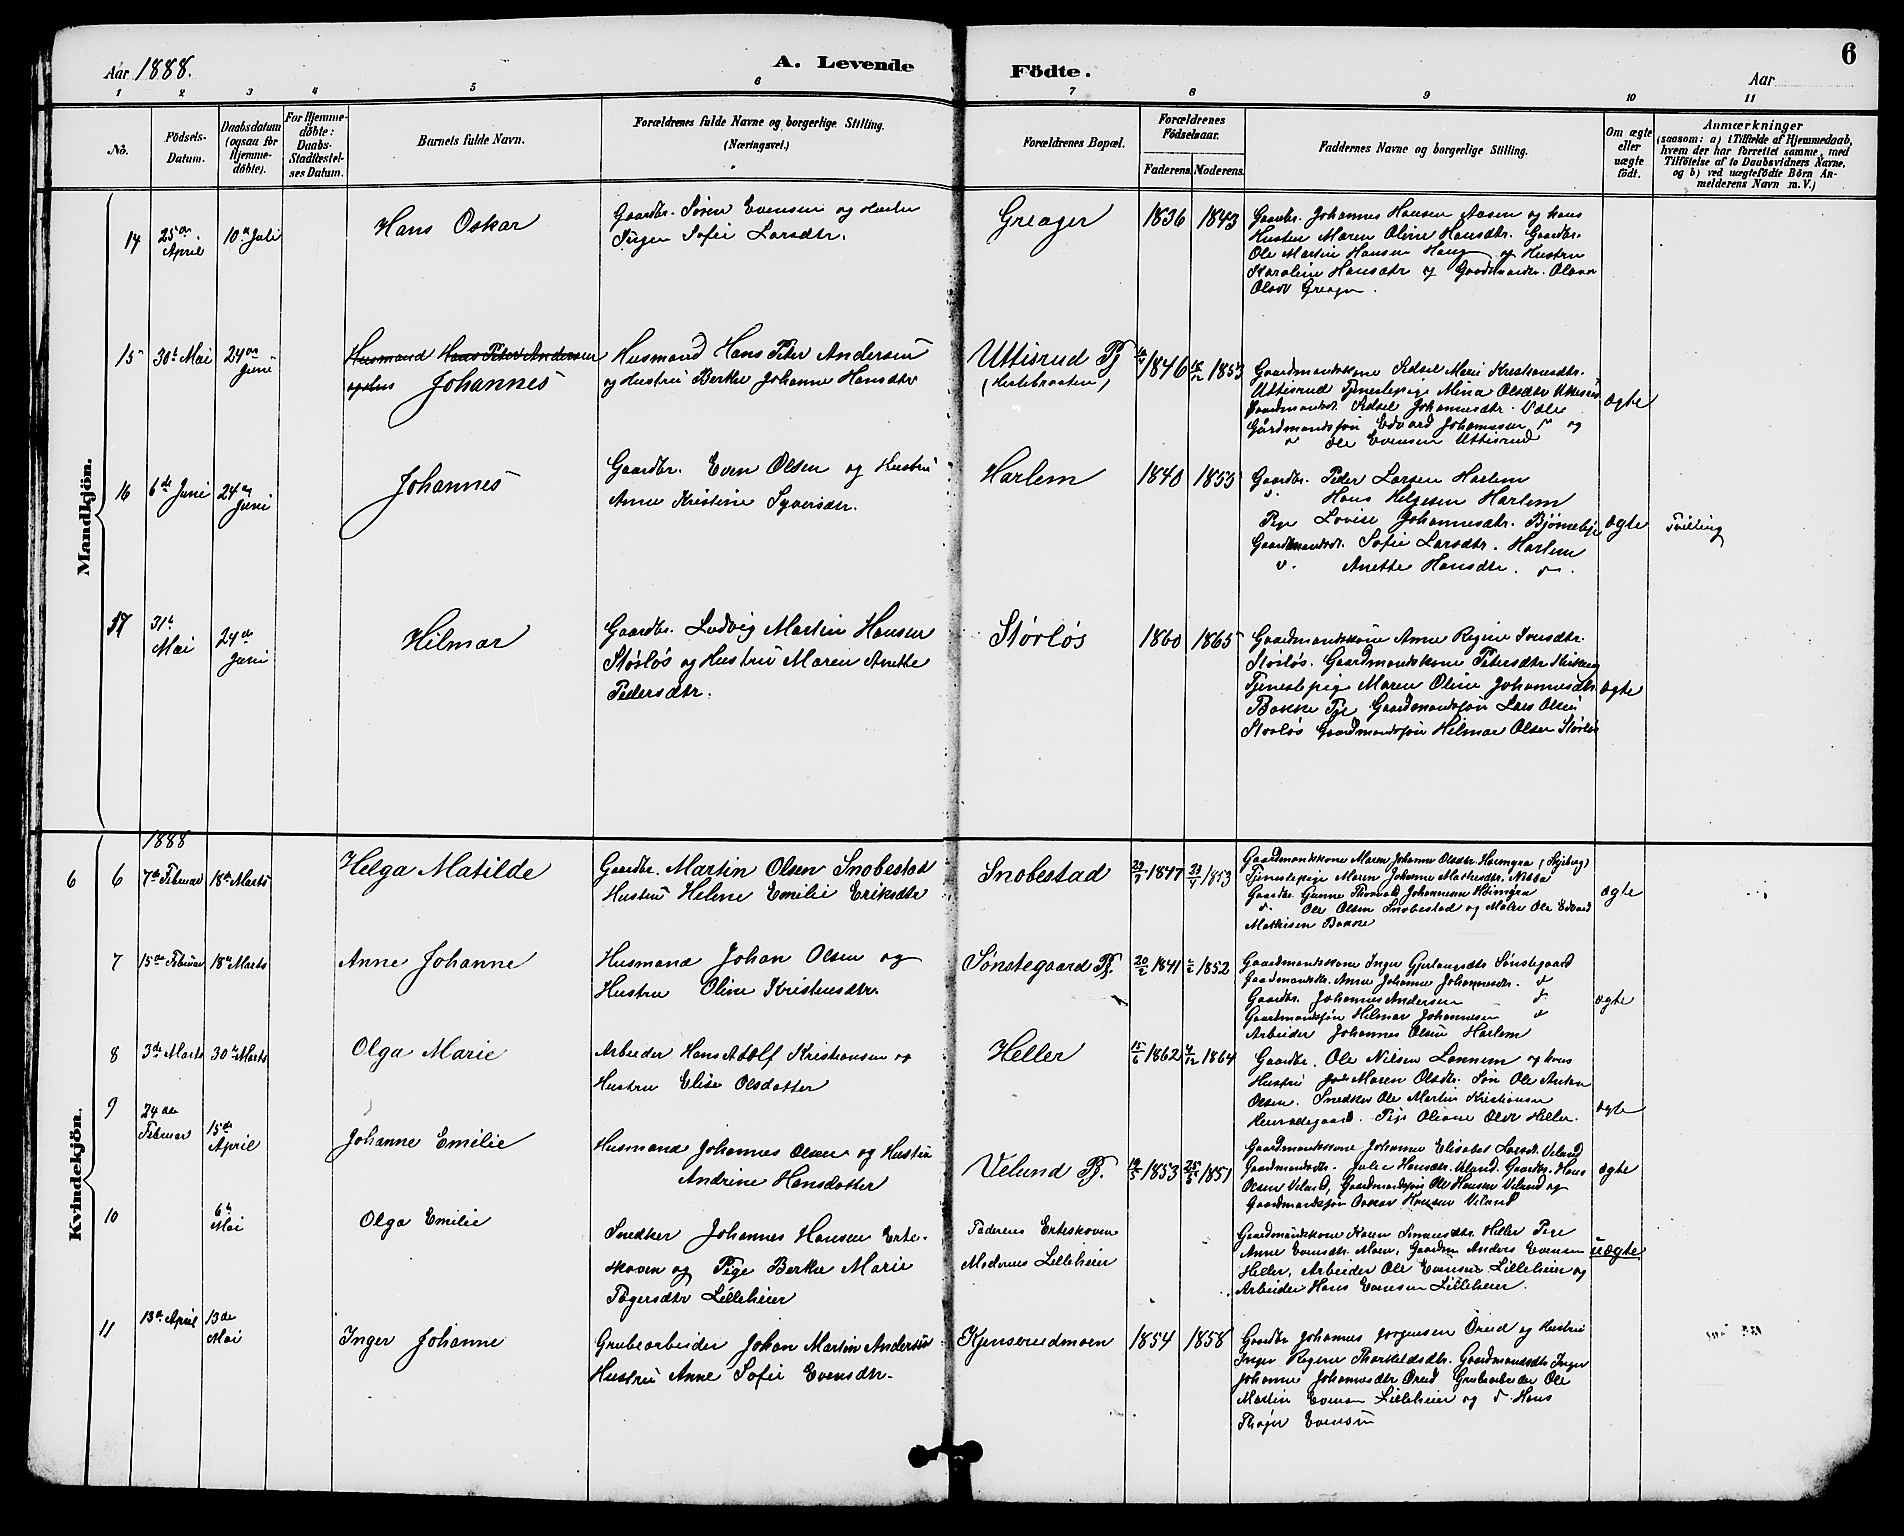 Aar 1888.
A. Levende Födte.
Aar
6
1 2 3 4 5 6 7 8 9 10 11
No.
Födsels-Datum.
Daabsdatum (ogsaa for Hjemme-døbte).
For Hjemme-døbte: Daabs-Stadfæstel-ses Datum.
Barnets fulde Navn.
Forældrenes fulde Navne og borgerlige Stilling. (Næringsvei.)
Forældrenes Bopæl.
Forældrenes Födselsaar.
Faderens. Moderens.
Faddernes Navne og borgerlige Stilling.
Om ægte eller uægte født.
Anmærkninger
(saasom: a) i Tilfælde af Hjemmedaab,
hvem der har forrettet samme, med
Tilføielse af to Daabsvidners Navne,
og b) ved uægtefødte Börn An-
melderens Navn m. V.)
Mandkjön.
14 25de April 10de Juli Hans Oskar
Gaardbr. Søren Evensen og Hustru
Inger Sofie Larsdtr.
Greager 1836 1843
Gaardbr. Johannes Hansen Aasen og hans
Hustru Maren Oline Hansdtr. Gaardbr.
Ole Martin Hansen Haug og Hustru
Karoline Hansdtr og Gaardmandsdr. Olava
Olsdr Greager.
15 30te Mai 24de Juni
Husmand Hans Peter Andersen
Johannes
Husmand Hans Peter Andersen
og Hustru Berthe Johanne Hansdtr
Uttisrud Pl 1846 1853
Gaardmandskone Kidsel Marie Kristiansdtr.
Uttisrud Tjenestepig Mina Olsdtr Uttisrud
Gaardmandsdt. Kidsel Johannesdtr.
Gårdmandsføn Edvard Johannesen og
Ole Evensen Uttisrud
ægte
16 6te Juni 24de Juni Johannes
Gaardbr. Even Olsen og Hustru
Anne Kristine Syversdtr.
Harlem 1840 1855
Gaardbr. Peder Larsen Harlem
Hans Helgesen Harlem
Pige Lovise Johannesdtr.
Gaardmandsdt. Sofie Larsdtr. Harlem
Anette Hansdtr.
ægte Tvilling
17 31te Mai 24de Juni Hilmar
Gaardbr. Ludvig Martin Hansen
Störlös og Hustru Maren Anette
Pedersdtr.
Störlös 1860 1865
Gaardmandskone Anne Regine Ivarsdtr.
Störlös. Gaardmandskone Petersdtr
Tjenestepig Maren Oline Johannesdtr
Bakke Gaardmandsføn Lars Olsen
Störlös Gaardmandsføn Hilmar Olsen Störlös
ægte
Kvindekjön.
1888
6 6 7de Februar 18de Marts Helga Matilde
Gaardbr. Martin Olsen Snobestad
Hustru Helene Emilie Eriksdtr
Snobestad 29/7 1847 1853
Gaardmandskone Maren Johanne Olsdtr
Tjenestepige Maren Johanne
Gaardbr. Gunne Thorvald Johannesen
Ole Olsen Snobestad og Maler Ole Edvard
Mathisen Bakke
ægte
7 15de Februar 18de Marts Anne Johanne
Husmand Johan Olsen og
Hustru Oline Kristensdtr.
Sønstegaard Pl. 20/2 1841 1852
Gaardmandskone Inger Sønstegaard
Gaardmandsdtr. Anne Johanne Johannesdtr.
Gaardbr. Johannes Andersen
Gaardmandsføn Hilmar Johannesen
Arbeider Johannes Olsen Harlem
ægte
8 3de Marts 30te Marts Olga Marie
Arbeider Hans Adolf Kristiansen og
Hustru Elise Olsdatter
Heller 15/6 1862 1864
Gaardbr. Ole Nilsen Lannem og hans
Hustru Maren Olsdtr. Søn Ole Anton
Olsen. Snedker Ole Martin Kristiansen
Pige Oliane Olsdr Heller.
ægte
9 24de Februar 15de April Johanne Emilie
Husmand Johannes Olsen og Hustru
Andrine Hansdatter
Velund Pl. 1853 25/5 1851
Gaardmandskone Johanne Elisabet Larsdt. Velund
Gaardmandsdtr. Julie Hansdtr. Velund. Gaardbr. Hans
Olsen Velund, Gaardmandsføn Ole Hansen Velund og
Gaardmandsføn Oskar Hansen Velund
ægte
10 6te Mai Olga Emilie
Snedker Johannes Hansen Erte-
skoven og Pige Berthe Marie
Lilleheier
Faderens Erteskoven
Moderens Lilleheier
Gaardmandskone Karen Heller Pige
Anne Evensdtr. Moen, Gaardm Anders Evensen
Heller, Arbeider Ole Evensen Lilleheier og
Arbeider Hans Evensen Lilleheier.
uægte
11 13de April 13de Mai Inger Johanne
Grubearbeider Johan Martin Andersen
Hustru Anne Sofie Evensdtr.
Kjenserudmoen 1854 1858
Gaardbr Johannes Jørgensen Ørud og Hustru
Inger Regine Thorkildsdtr. Gaardmandsdtr Inger
Johanne Johannesdtr Ørud Grubearbeider Ole
Martin Evensen Lilleheier og Hans
Evensen